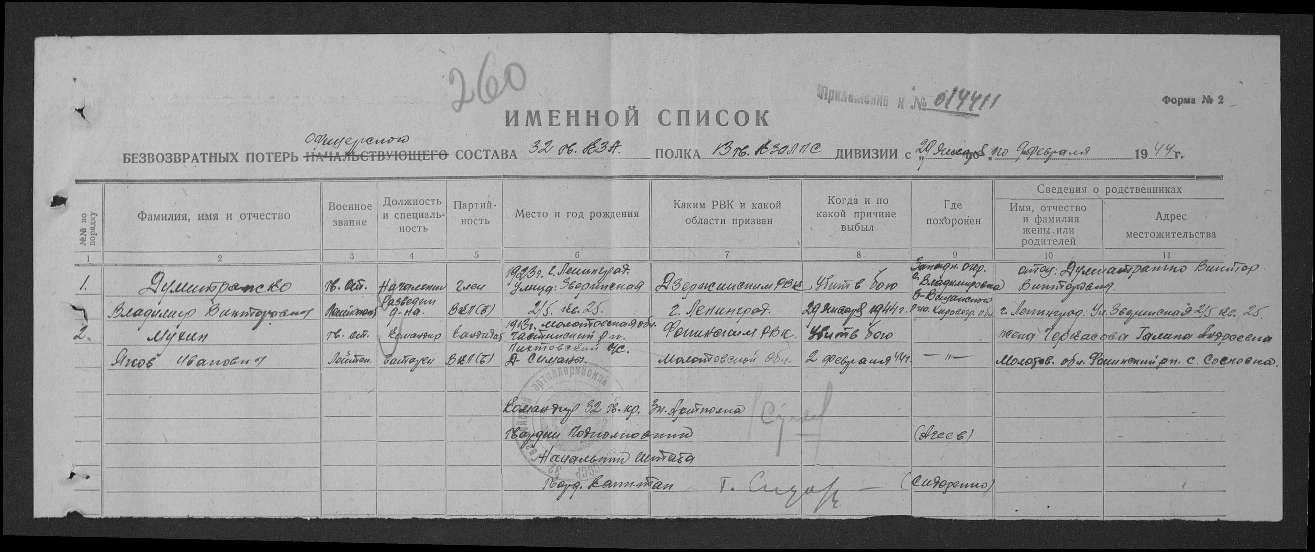 260
Приложение к № 014411
Форма № 2
ИМЕННОЙ СПИСОК
офицерского
БЕЗВОЗВРАТНЫХ ПОТЕРЬ НАЧАЛЬСТВУЮЩЕГО СОСТАВА 32 гв. КЗА ПОЛКА 13 гв. ДИВИЗИИ с 29 января по февраля 1944 г.
Сведения о родственниках
№№ по порядку
Фамилия, имя и отчество
Военное звание
Должность и специальность
Партийность
Место и год рождения
Каким РВК и какой области призван
Когда и по какой причине выбыл
Где похоронен
Имя, отчество и фамилия жены или родителей
Адрес местожительства
1 2 3 4 5 6 7 8 9 10 11
1. гв. ст. Начальник член 1923 г. г. Ленинград Дзержинским РВК убит в бою отец Виктор Викторович
Владимир Викторович Лейтенант разведки д-на ВКП(б) 2/5 кв. 25. г. Ленинград. 29 января 1944 г. г. Ленинград. Ул. Зверинская 2/5 кв. 25.
2. Мусин гв. ст. Командир кандидат Фокинским РВК. Убит в бою жена Черкасова Галина Андреевна
Яков Иванович Лейтен. батареи ВКП(б) Молотовской обл. 2 февраля 44 г. — " — Молотов. обл. Фокинский рн. с. Сосновка.
Командир 32 гв. кр. Зн. Артполка
Гвардии Подполковник (Агеев)
Начальник штаба
Гвард. Капитан (Сидоренко)